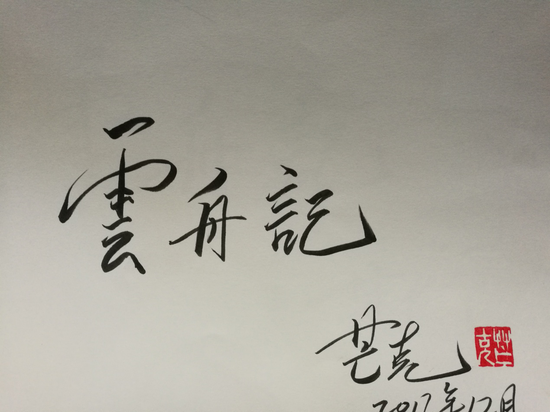 雲舟記
芸克
2017年12月